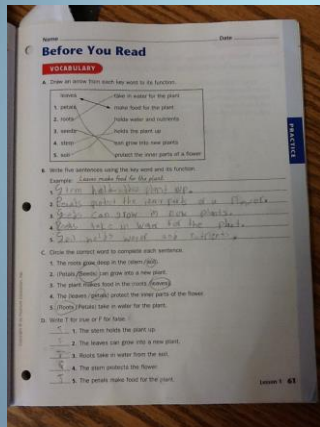 Name Date
Before You Read
VOCABULARY
A. Draw an arrow from each key word to its function.
leaves take in water for the plant
1. petals make food for the plant
2. roots holds water and nutrients
3. seeds holds the plant up
4. stem can grow into new plants
5. soil protect the inner parts of a flower
B. Write five sentences using the key word and its function.
Example: Leaves make food for the plant.
1. Stem holds the plant up.
2. protect the inner parts of a flower
3. can grow in new plants.
4. take in for the plant.
5. Soil holds water and
C. Circle the correct word to complete each sentence.
1. The roots grow deep in the (stem/soil).
2. (Petals/Seeds) can grow into a new plant.
3. The plant makes food in the (roots/leaves).
4. The (leaves/petals) protect the inner parts of the flower.
5. (Roots/Petals) take in water for the plant.
D. Write T for true or F for false.
1. The stem holds the plant up.
2. The leaves can grow into a new plant.
3. Roots take in water from the soil.
4. The stem protects the flower.
5. The petals make food for the plant.
PRACTICE
Lesson 1 61